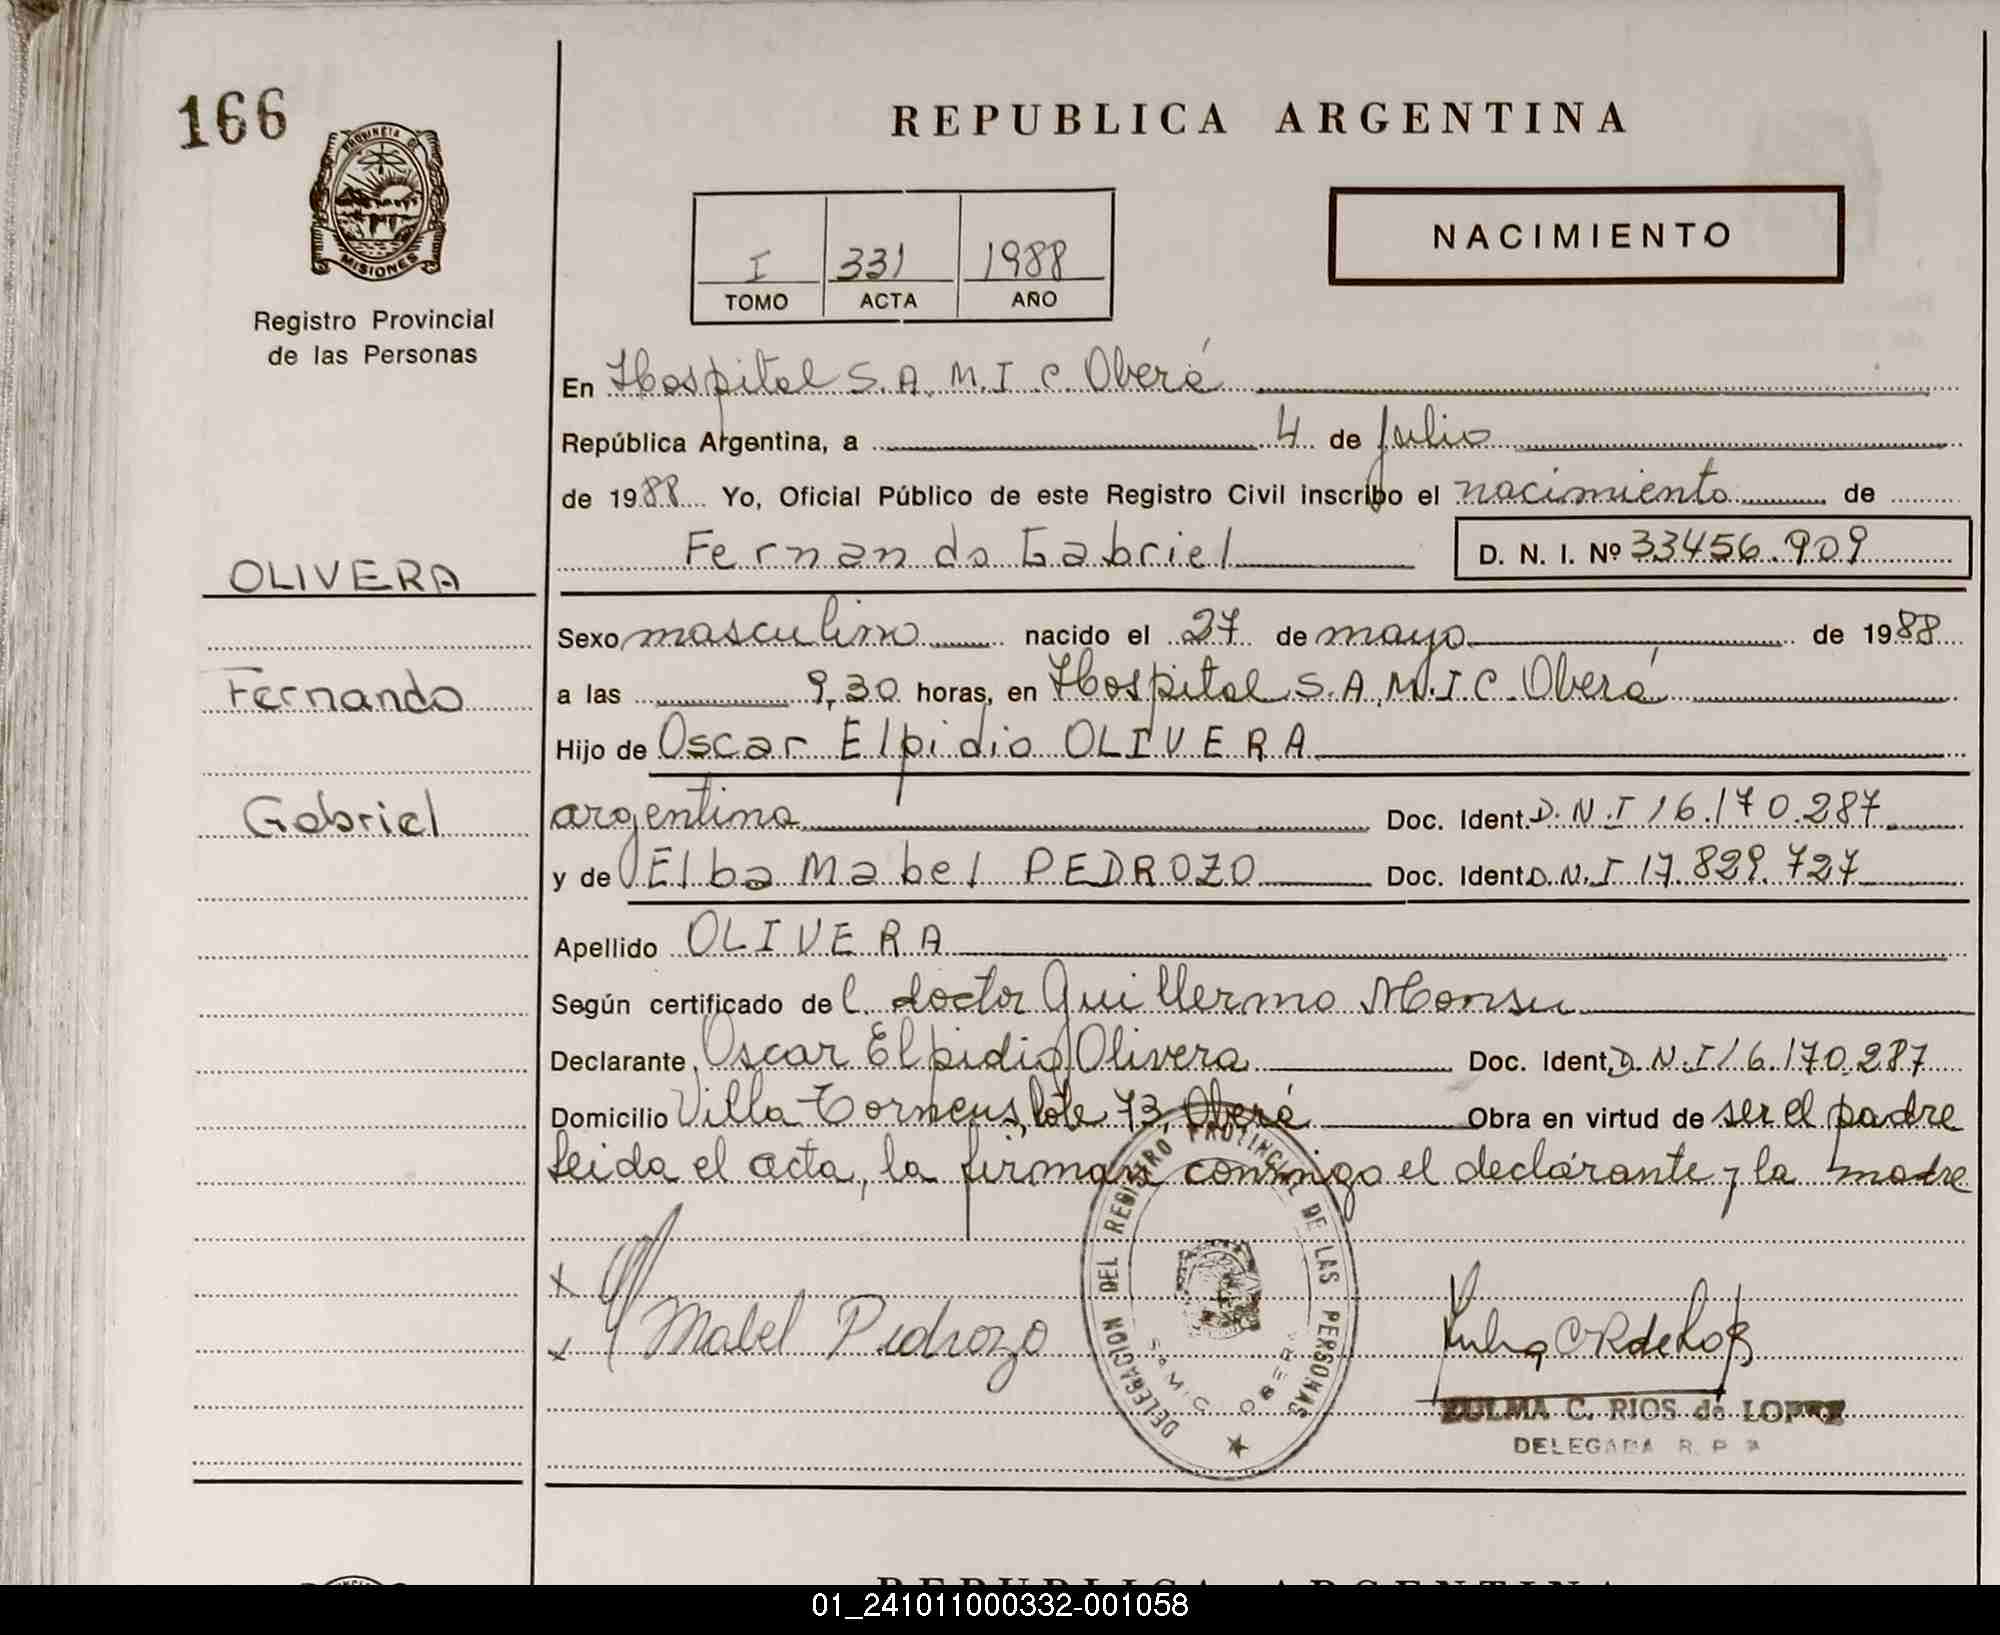 166
PROVINCIA DE
MISIONES
Registro Provincial
de las Personas
REPUBLICA ARGENTINA
I 331 1988
TOMO ACTA AÑO
NACIMIENTO
En Hospital S.A.M.I.C. Oberá
República Argentina, a 4 de Julio
de 1988 Yo, Oficial Público de este Registro Civil inscribo el nacimiento de
Fernando Gabriel D. N. I. Nº 33456.909
OLIVERA
Sexo masculino nacido el 27 de mayo de 1988
Fernando
a las 9,30 horas, en Hospital S.A.M.I.C. Oberá
Hijo de Oscar Elpidio OLIVERA
Gabriel
argentina Doc. Ident. D.N.I 16.170.287
y de Elba Mabel PEDROZO Doc. Ident. D.N.I 17.829.727
Apellido OLIVERA
Según certificado del doctor Guillermo
Declarante Oscar Elpidio Olivera Doc. Ident. D.N.I 16.170.287
Domicilio Villa lote 73, Oberá Obra en virtud de ser el padre
leida el acta, la firman conmigo el declarante y la madre
Mabel Pedrozo
DELEGACION DEL REGISTRO PROVINCIAL DE LAS PERSONAS
OBERA
ZULMA C. RIOS de LOPEZ
DELEGADA R. P. P.
REPUBLICA ARGENTINA
01_241011000332-001058